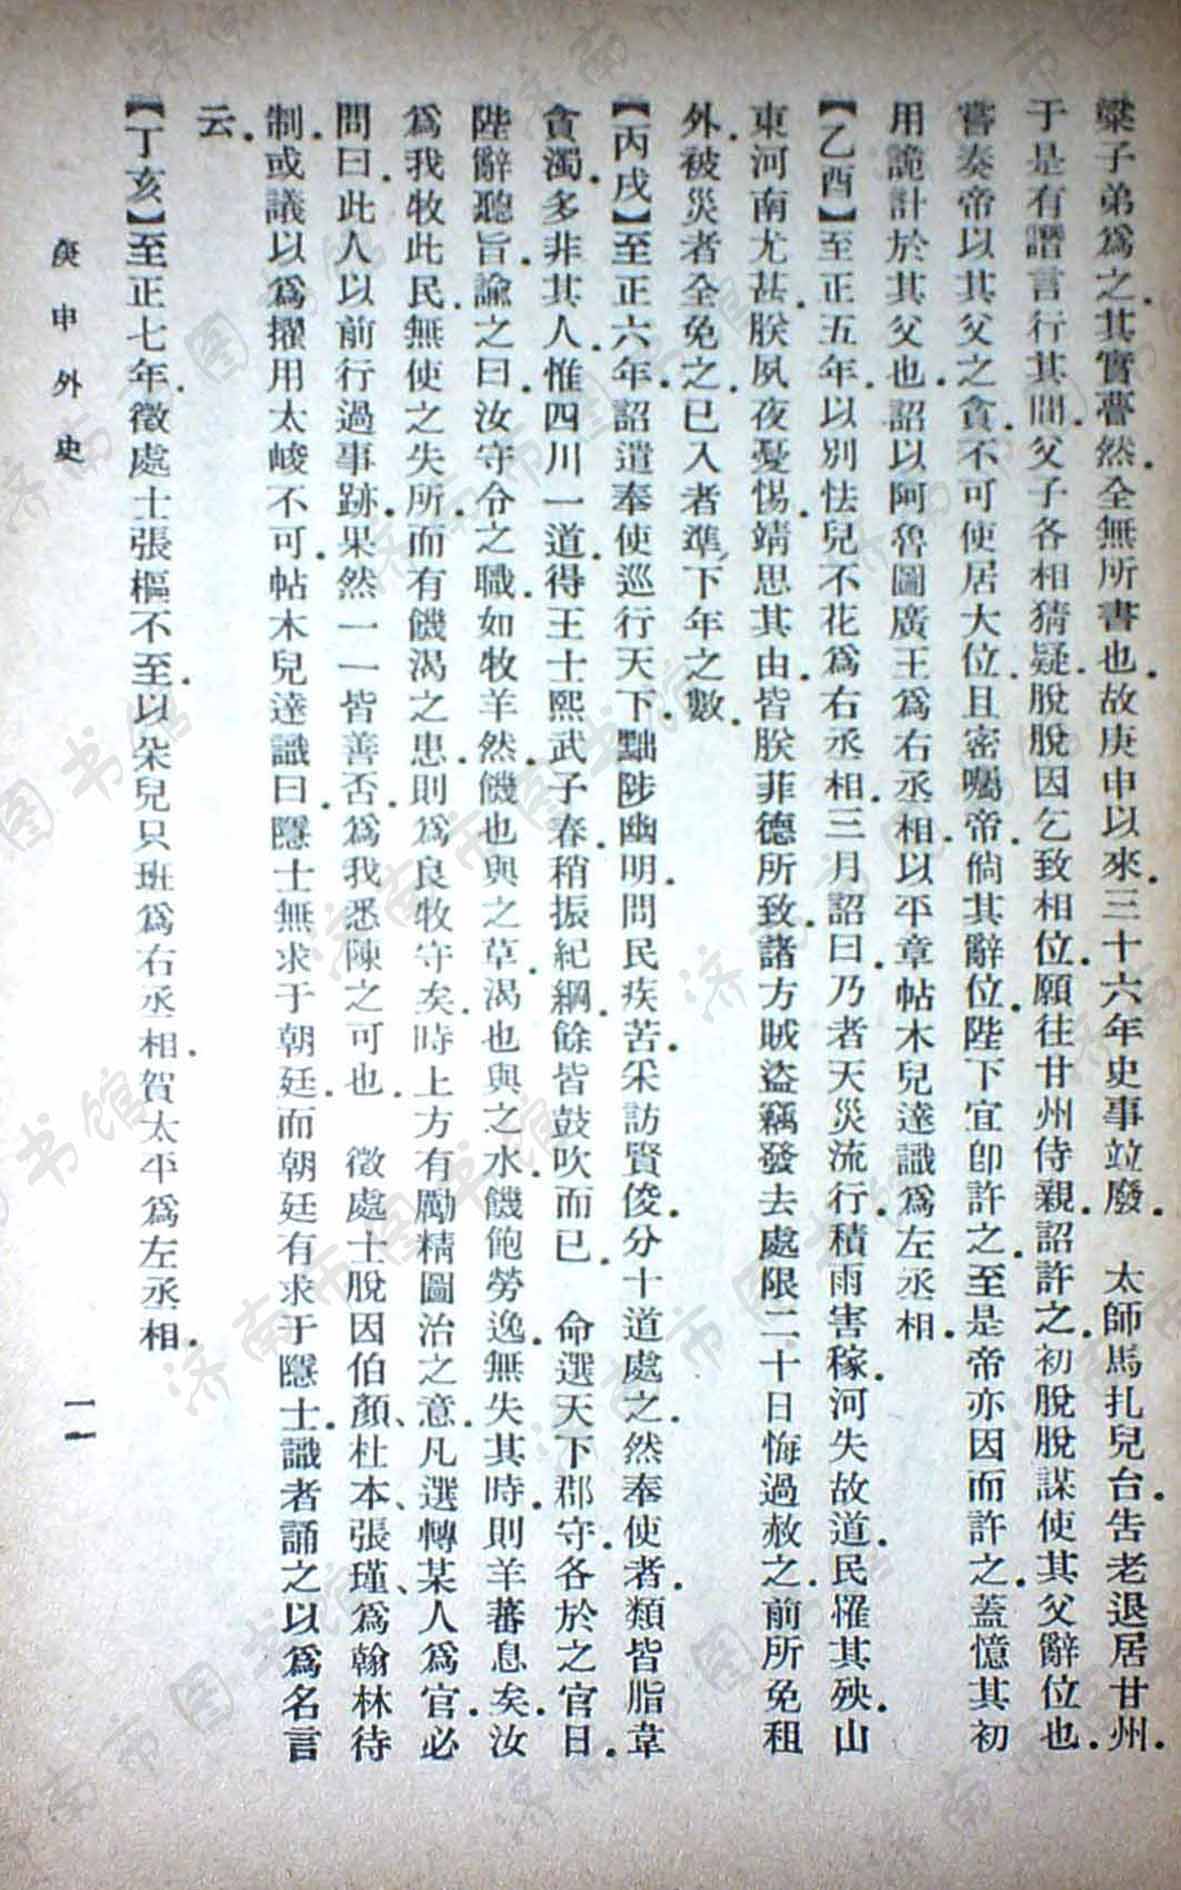 粱子弟爲之.其實瞢然.全無所書也.故庚申以來.三十六年史事竝廢.　太師馬扎兒台.告老退居甘州.
于是有譖言行其間.父子各相猜疑.脫脫因乞致相位.願往甘州侍親.詔許之.初脫脫謀使其父辭位也.
嘗奏帝以其父之貪.不可使居大位.且密囑帝.倘其辭位.陛下宜卽許之.至是帝亦因而許之.蓋憶其初
用詭計於其父也.詔以阿魯圖廣王爲右丞相.以平章帖木兒達識爲左丞相.
【乙酉】至正五年.以別怯兒不花爲右丞相.三月詔曰.乃者天災流行.積雨害稼.河失故道.民罹其殃.山
東河南尤甚.朕夙夜憂惕.靖思其由.皆朕菲德所致.諸方賊盜竊發去處限二十日悔過赦之.前所免租
外.被災者全免之.已入者準下年之數.
【丙戌】至正六年.詔遣奉使巡行天下.黜陟幽明.問民疾苦.采訪賢俊.分十道處之.然奉使者.類皆脂韋
貪濁.多非其人.惟四川一道.得王士熙武子春.稍振紀綱.餘皆鼓吹而已.　命選天下郡守.各於之官日.
陛辭聽旨.諭之曰.汝守令之職.如牧羊然.饑也與之草.渴也與之水.饑飽勞逸.無失其時.則羊蕃息矣.汝
爲我牧此民.無使之失所.而有饑渴之患.則爲良牧守矣.時上方有勵精圖治之意.凡選轉某人爲官.必
問曰.此人以前行過事跡.果然一一皆善否.爲我悉陳之可也.　徵處士脫因伯顏、杜本、張瑾、爲翰林待
制.或議以爲擢用太峻不可.帖木兒達識曰.隱士無求于朝廷.而朝廷有求于隱士.識者誦之以爲名言
云.
【丁亥】至正七年.徵處士張樞不至.以朵兒只班爲右丞相.賀太平爲左丞相.
庚申外史
一一